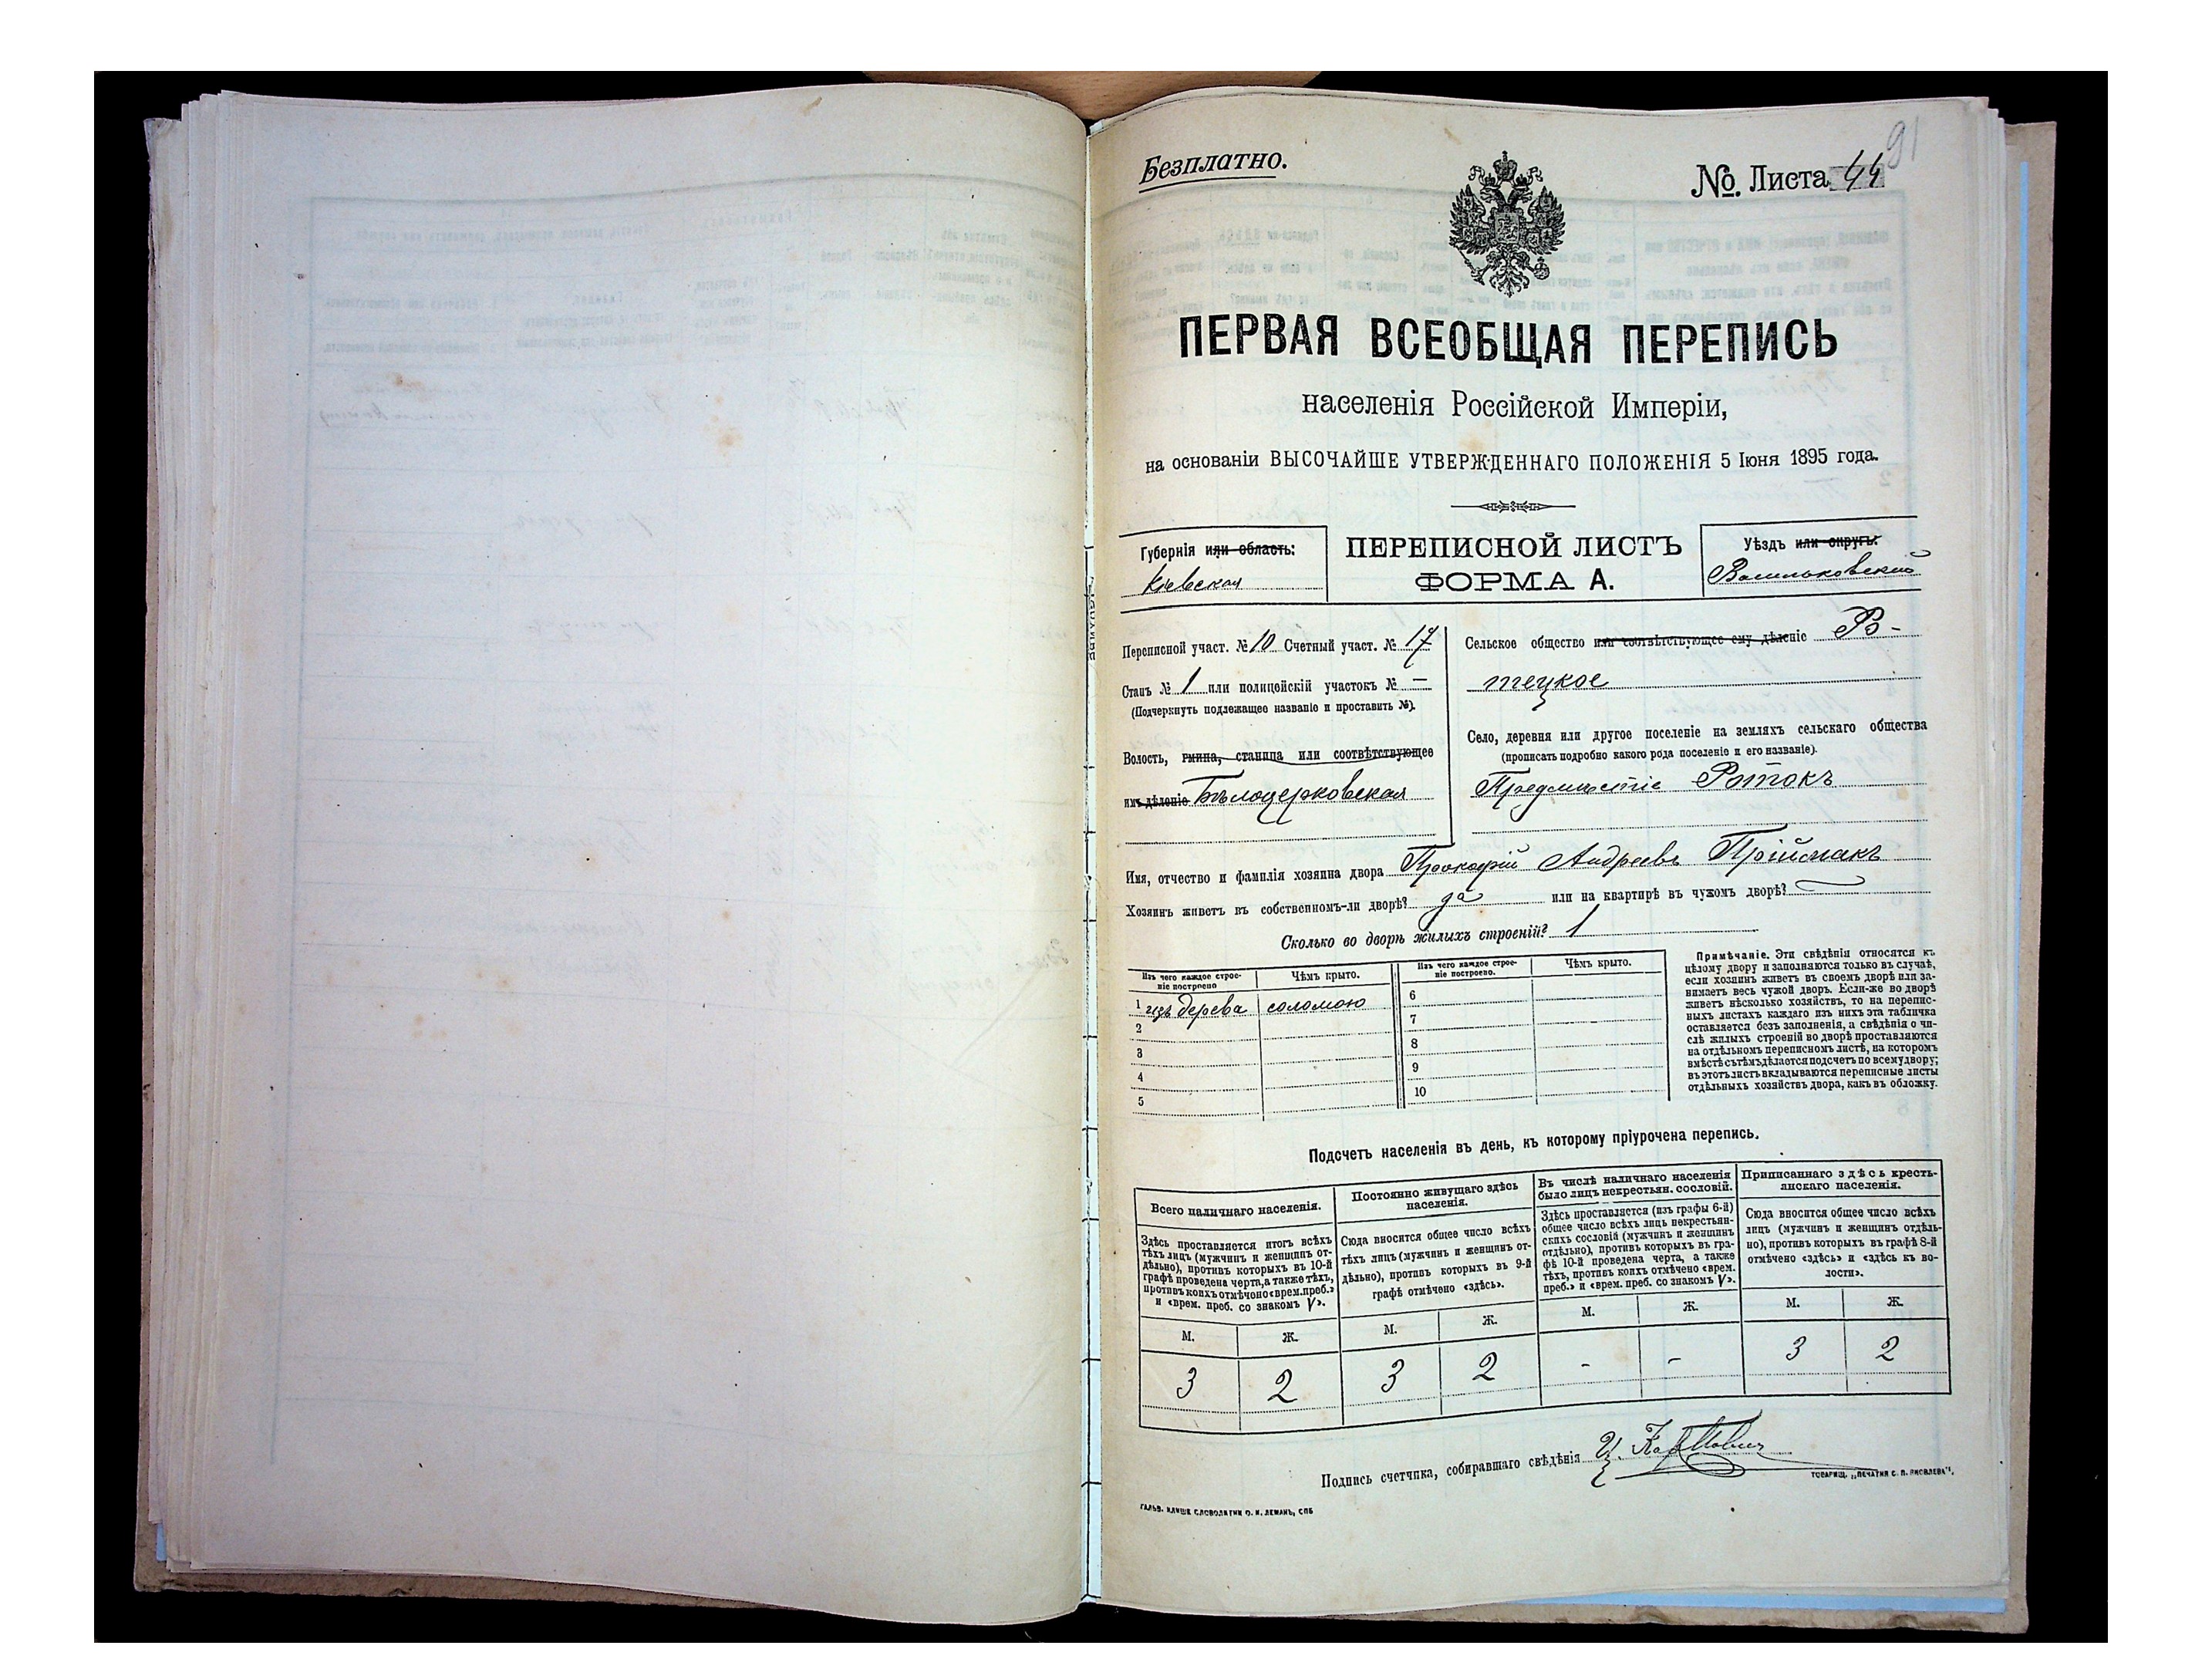 Безплатно.
№ Листа 44
91
ПЕРВАЯ ВСЕОБЩАЯ ПЕРЕПИСЬ
населенія Россійской Имперіи,
на основаніи ВЫСОЧАЙШЕ УТВЕРЖДЕННАГО ПОЛОЖЕНІЯ 5 Іюня 1895 года.
Губернія или область:
Кіевская
ПЕРЕПИСНОЙ ЛИСТЪ
ФОРМА А.
Уѣздъ или округъ:
Васильковскій
Переписной участ. № 10 Счетный участ. № 17
Станъ № 1 или полицейскій участокъ № —
(Подчеркнуть подлежащее названіе и проставить №).
Волость, гмина, станица или соотвѣтствующее
имъ дѣленіе Бѣлоцерковская
Сельское общество или соотвѣтствующее ему дѣленіе Ро-
тецкое
Село, деревня или другое поселеніе на земляхъ сельскаго общества
(прописать подробно какого рода поселеніе и его названіе).
Предмѣстіе Ротокъ
Имя, отчество и фамилія хозяина двора Прокофій Андреевъ Пріймакъ
Хозяинъ живетъ въ собственномъ-ли дворѣ? да или на квартирѣ въ чужомъ дворѣ? —
Сколько во дворѣ жилыхъ строеній? 1
Изъ чего каждое строе-
ніе построено
Чѣмъ крыто.
Изъ чего каждое строе-
ніе построено.
Чѣмъ крыто.
1 изъ дерева соломою
2
3
4
5
6
7
8
9
10
Примѣчаніе. Эти свѣдѣнія относятся къ
цѣлому двору и заполняются только въ случаѣ,
если хозяинъ живетъ въ своемъ дворѣ или за-
нимаетъ весь чужой дворъ. Если-же во дворѣ
живетъ нѣсколько хозяйствъ, то на перепис-
ныхъ листахъ каждаго изъ нихъ эта табличка
оставляется безъ заполненія, а свѣдѣнія о чи-
слѣ жилыхъ строеній во дворѣ проставляются
на отдѣльномъ переписномъ листѣ, на которомъ
вмѣстѣ съ тѣмъ дѣлается подсчетъ по всему двору;
въ этотъ листъ вкладываются переписные листы
отдѣльныхъ хозяйствъ двора, какъ въ обложку.
Подсчетъ населенія въ день, къ которому пріурочена перепись.
Всего наличнаго населенія.
Здѣсь проставляется итогъ всѣхъ
тѣхъ лицъ (мужчинъ и женщинъ от-
дѣльно), противъ которыхъ въ 10-й
графѣ проведена черта, а также тѣхъ,
противъ коихъ отмѣчено «врем. преб.»
и «врем. преб. со знакомъ V».
М. Ж.
3 2
Постоянно живущаго здѣсь
населенія.
Сюда вносится общее число всѣхъ
тѣхъ лицъ (мужчинъ и женщинъ от-
дѣльно), противъ которыхъ въ 9-й
графѣ отмѣчено «здѣсь».
М. Ж.
3 2
Въ числѣ наличнаго населенія
было лицъ некрестьян. сословій.
Здѣсь проставляется (изъ графы 6-й)
общее число всѣхъ лицъ некрестьян-
скихъ сословій (мужчинъ и женщинъ
отдѣльно), противъ которыхъ въ гра-
фѣ 10-й проведена черта, а также
тѣхъ, противъ коихъ отмѣчено «врем.
преб.» и «врем. преб. со знакомъ V».
М. Ж.
- -
Приписаннаго здѣсь кресть-
янскаго населенія.
Сюда вносится общее число всѣхъ
лицъ (мужчинъ и женщинъ отдѣль-
но), противъ которыхъ въ графѣ 8-й
отмѣчено «здѣсь» и «здѣсь къ во-
лости».
М. Ж.
3 2
Подпись счетчика, собиравшаго свѣдѣнія
ГАЛЬВ. КЛИШЕ СЛОВОЛИТНИ О. И. ЛЕМАНЪ, СПБ
ТОВАРИЩ. „ПЕЧАТНЯ С. П. ЯКОВЛЕВА".